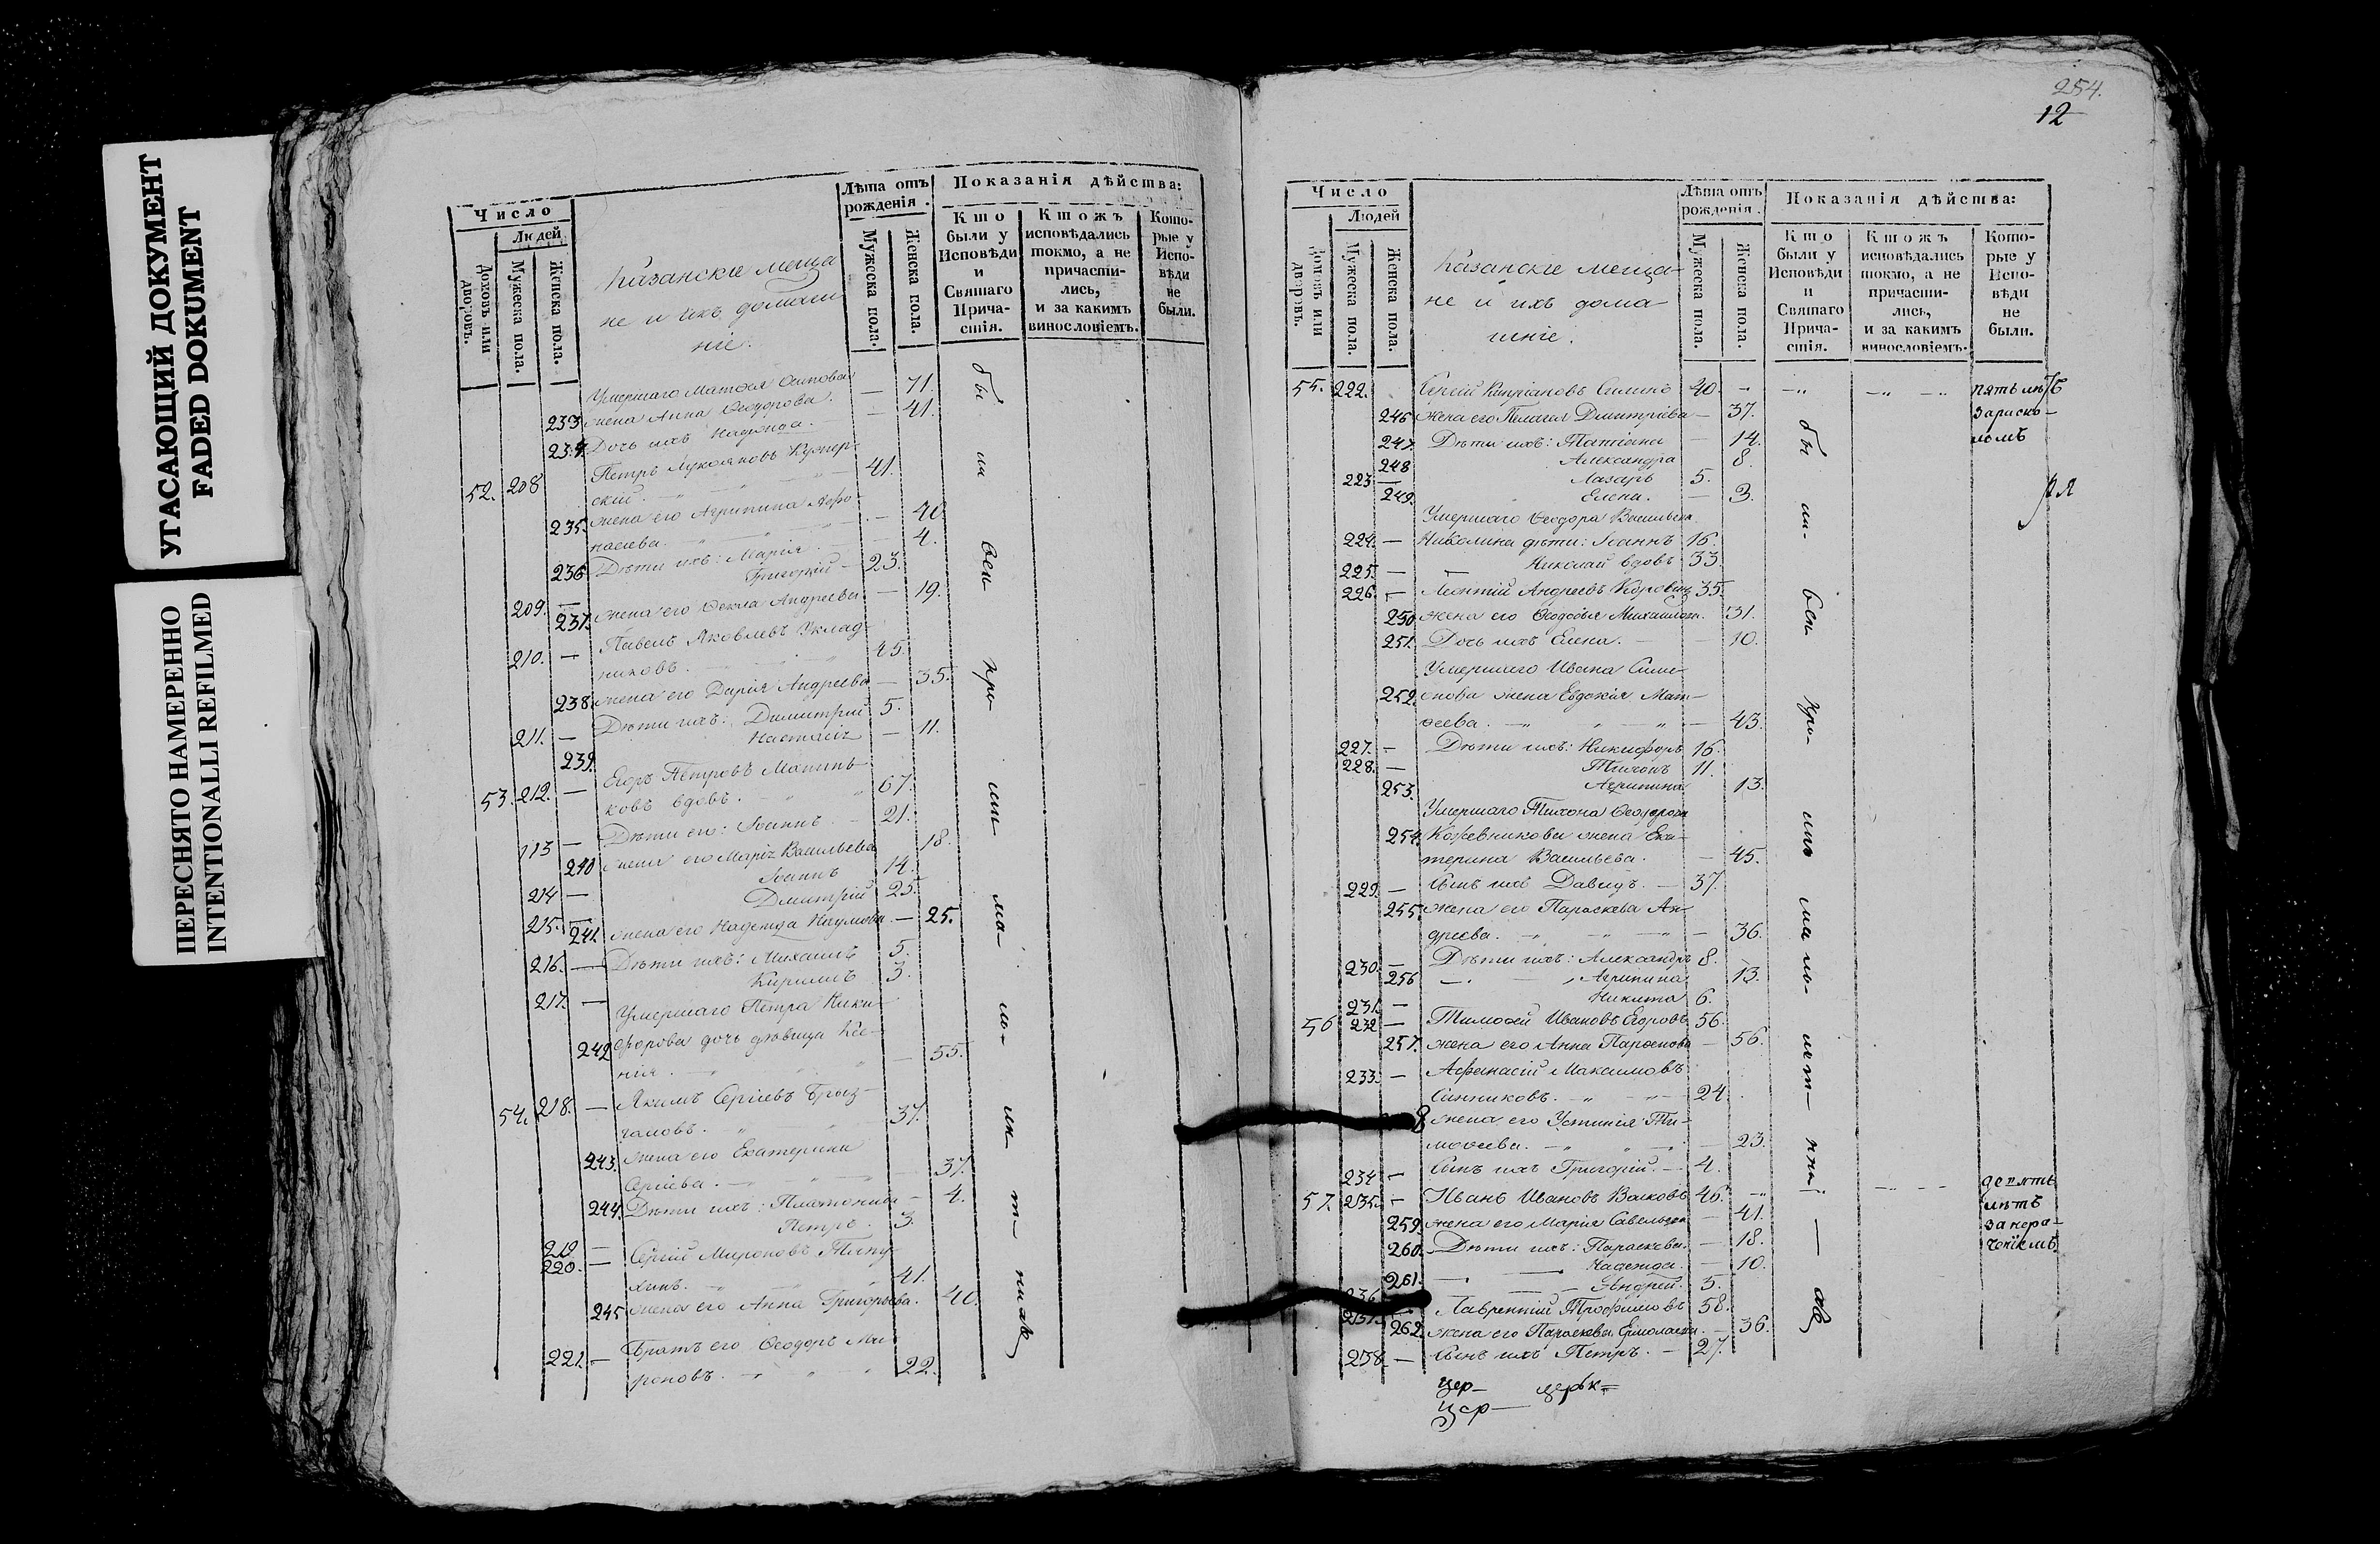 УГАСАЮЩИЙ ДОКУМЕНТ
FADED DOKUMENT
ПЕРЕСНЯТО НАМЕРЕННО
INTENTIONALLI REFILMED
Число
Людей
Домовъ или дворовъ.
Мужеска пола.
Женска пола.
Казанскіе меща
не и ихъ домаш
ніе.
Лѣта отъ рожденія.
Мужеска пола.
Женска пола.
Показанія дѣйства:
Кто были у Исповѣди и Святаго Причастія.
Ктожъ исповѣдались токмо, а не причастились, и за какимъ винословіемъ.
Которые у Исповѣди не были.
Умершаго Матѳея Осипова
233 жена Анна Ѳеодорова. — 71.
234 Дочь ихъ Надежда. — 41.
52. 208 Петръ Лукояновъ
скій. 41.
235. жена его Агрипина Аѳо-
насьева. — 40.
236 Дѣти ихъ: Марія — 4.
209. — Григорій — 23.
237. жена его Ѳекла Андреева — 19.
210. — Павелъ Яковлевъ Уклад-
никовъ. 45.
238. жена его Дарія Андреева — 35.
211. — Дѣти ихъ: Димитрій 5.
239. Настасіа — 11.
53. 212. — Егоръ Петровъ
ковъ вдовъ. 67.
113 — Дѣти его: Іоаннъ. — 21.
240 жена его Маріа Васильева 18.
214 — Іоаннъ 14.
215. — Дмитрій 25.
241. жена его Надежда Наумова — 25.
216. — Дѣти ихъ: Михаилъ 5.
217. — Кирилъ 3.
Умершаго Петра Ники-
242 форова дочь дѣвица Ксе-
нія. — 55.
54. 218. — Якимъ Сергіевъ
галовъ. 37.
243. жена его Екатерина
Сергіева. — 37.
244. Дѣти ихъ: Платонида — 4.
219 — Петръ. 3.
220. — Сергій Мироновъ
хинъ. 41.
245 жена его Анна Григорьева. 40.
221. — Братъ его Ѳеодоръ Ми-
роновъ. 22.
бы
ли
254.
12
Число
Людей
Домовъ или дворовъ.
Мужеска пола.
Женска пола.
Казанскіе меща-
не и ихъ дома-
шніе.
Лѣта отъ рожденія.
Мужеска пола.
Женска пола.
Показанія дѣйства:
Кто были у Исповѣди и Святаго Причастія.
Ктожъ исповѣдались токмо, а не причастились, и за какимъ винословіемъ.
Которые у Исповѣди не были.
55. 222. Сергій Кипріановъ Силинъ 40. — пять лѣтъ
246 жена его Пелагея Дмитріева — 37. за раско-
247. Дѣти ихъ: Татіана — 14. ломъ
248 Александра 8.
223 — Лазарь 5.
249. Елена. — 3.
Умершаго Ѳеодора Васильева
224. — Николина дѣти: Іоаннъ 16.
225. — Николай вдовъ 33.
226. — Леонтій Андреевъ Коровинъ 35.
250 жена его Ѳеодосья Михаилова. 31.
251. Дочь ихъ Елена. — 10.
Умершаго Ивана Симе-
252. онова жена Евдокія Мат-
ѳеева. — 43.
227. — Дѣти ихъ: Никифоръ 16.
228. — Тихонъ 11.
253. Агрипина 13.
Умершаго Тихона Ѳеодорова
254. Кожевникова жена Ека-
терина Васильева. — 45.
229. — Сынъ ихъ Давидъ. — 37.
255. жена его Параскева Ан-
дреева. — 36.
230. — Дѣти ихъ: Александръ 8.
256 — Агрипина 13.
231. — Никита 6.
56 232 — Тимоѳей Ивановъ Егоровъ 56.
257. жена его Анна Парѳенова — 56.
233. — Аѳанасій Максимовъ
Синниковъ. 24.
8 жена его Устинія Ти-
моѳеева. — 23.
234 — Сынъ ихъ Григорій. — 4.
57. 235. — Иванъ Ивановъ Волковъ 46. десять
259. жена его Марія Савельева — 41. лѣтъ
260. Дѣти ихъ: Параскева. — 18. за нера-
261. — Надежда. — 10. ченіемъ
236 Андрей. 5.
237. Лаврентій Трофимовъ 58.
262. жена его Параскева Ермолаева. — 36.
238. — Сынъ ихъ Петръ. — 27.
бы
ли
цер— церьк=
цер—